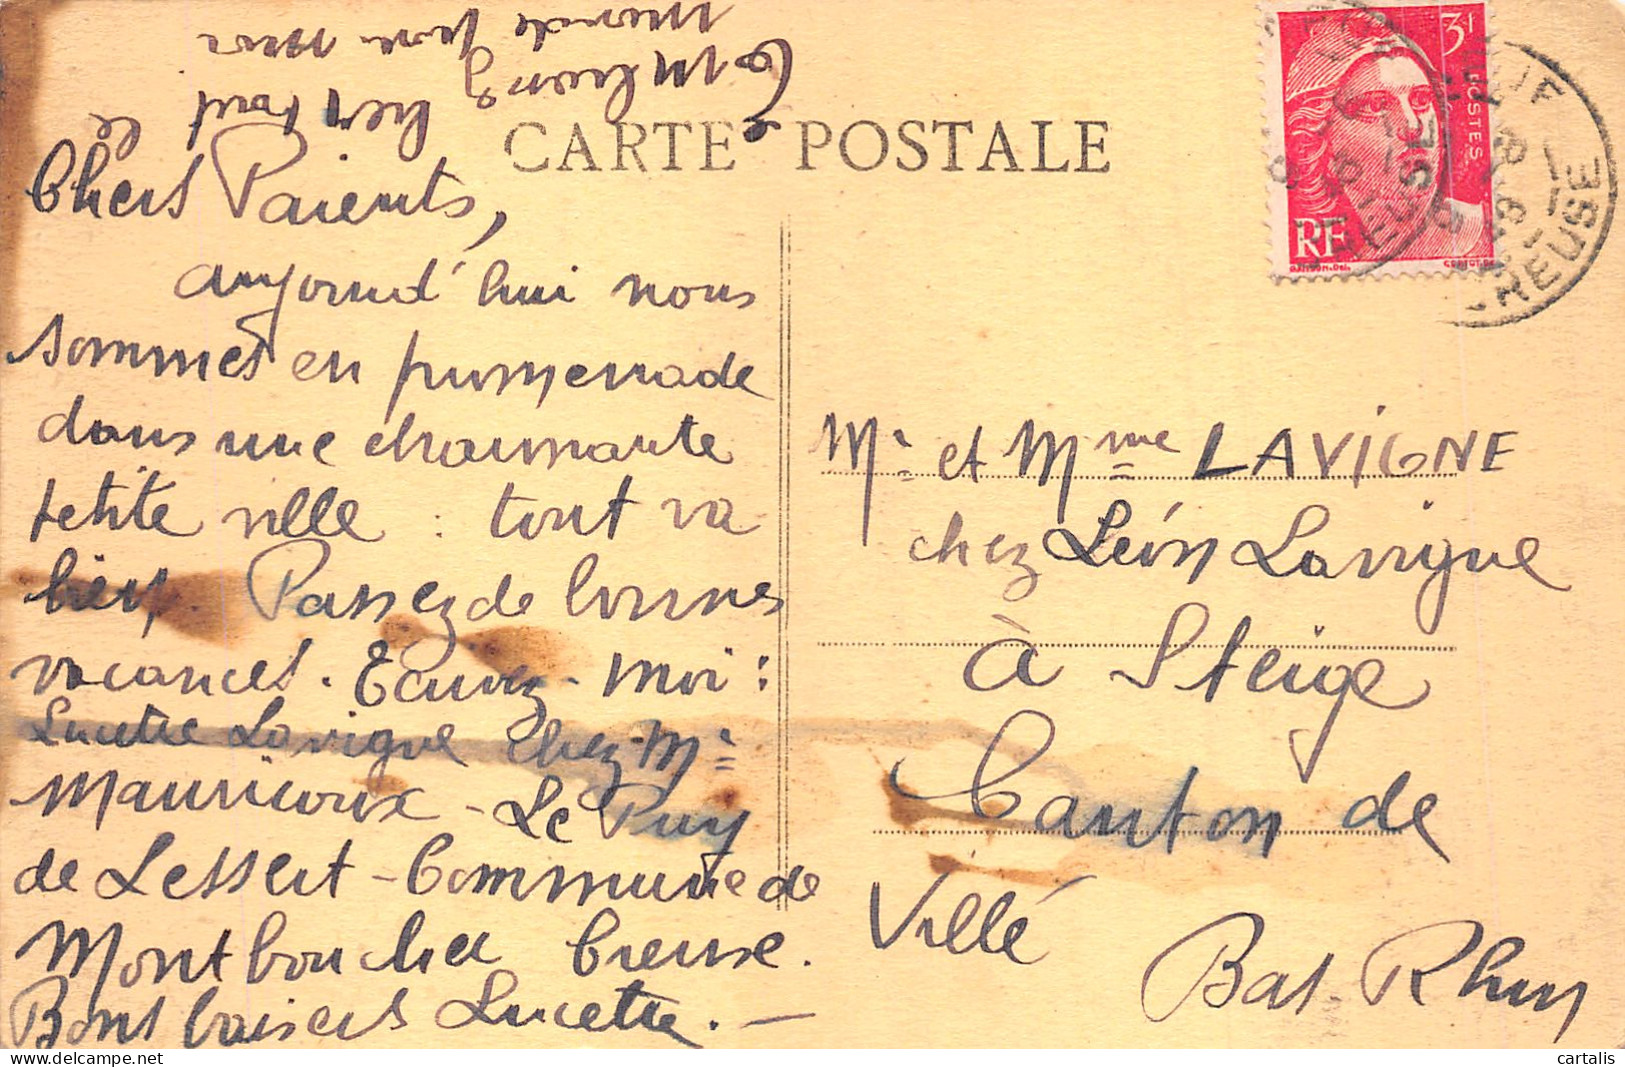 CARTE POSTALE
Chers Parents,
aujourd'hui nous
sommes en promenade
dans une charmante
petite ville : tout va
bien. Passez de bonnes
vacances. Ecrivez-moi :
Lucette Lavigne chez Mr
Mauricoux - Le Puy
de Lessert - Commune de
Montboucher Creuse.
Bons baisers Lucette. -
bien tout le
monde pour moi
3F
POSTES
RF
GANDON.DEL.
CREUSE
Mr et Mme LAVIGNE
chez Léon Lavigne
à Steige
Canton de
Villé
Bas-Rhin
cartalis